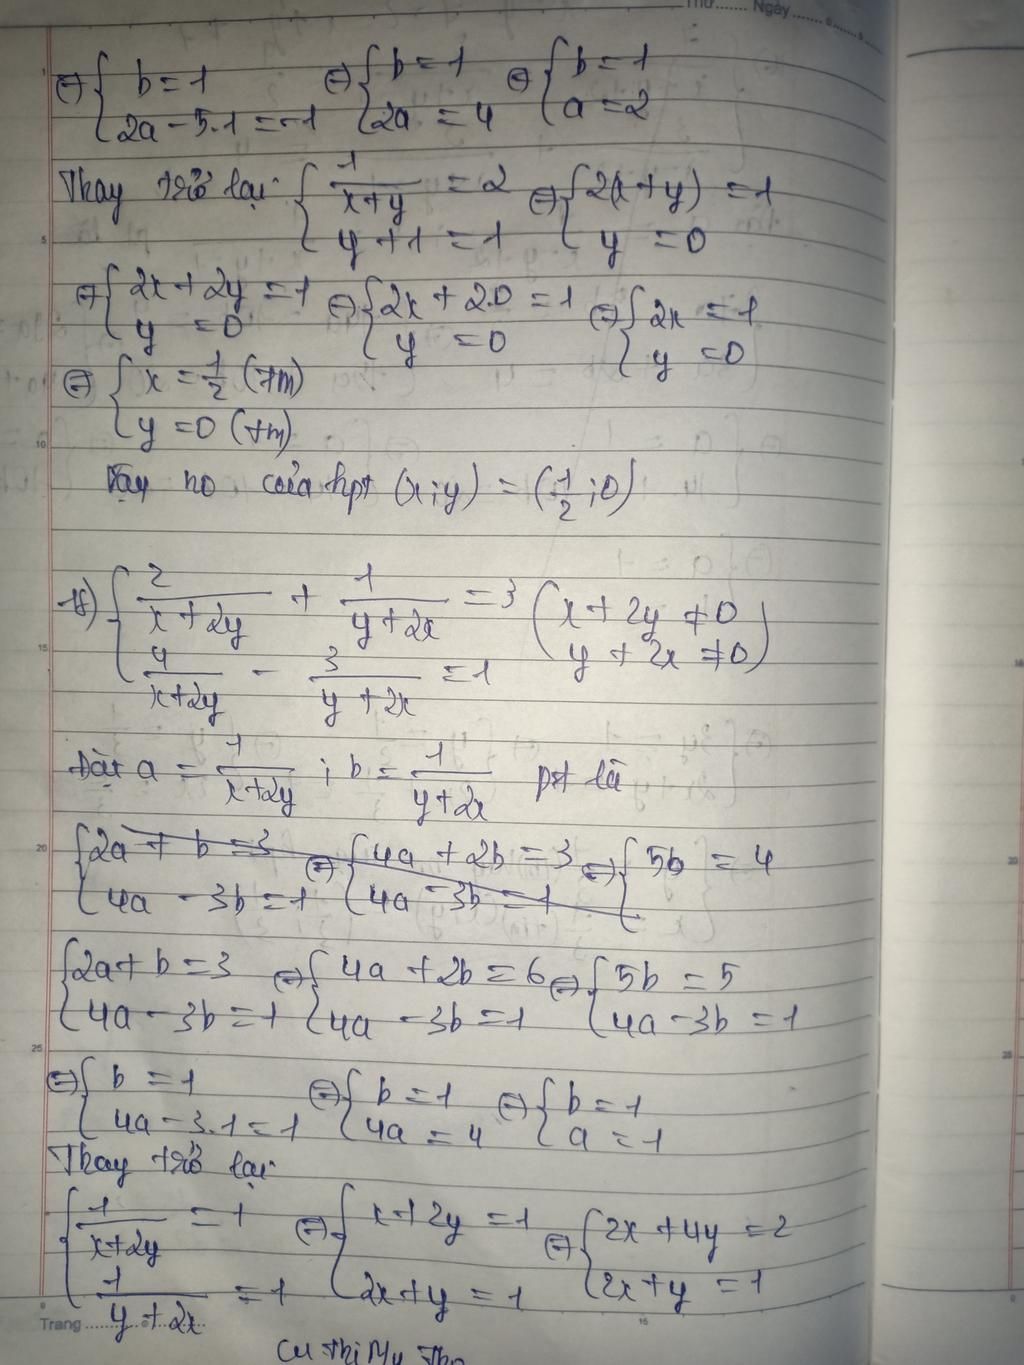 Thứ....... Ngày.......
⇔ { b = 1 ; 2a - 5.1 = -1 ⇔ { b = 1 ; 2a = 4 ⇔ { b = 1 ; a = 2
Thay trở lại { 1/(x+y) = 2 ; y + 1 = 1 ⇔ { 2(x+y) = 1 ; y = 0
⇔ { 2x + 2y = 1 ; y = 0 ⇔ { 2x + 2.0 = 1 ; y = 0 ⇔ { 2x = 1 ; y = 0
⇔ { x = 1/2 (tm) ; y = 0 (tm)
Vậy no của hpt (x;y) = (1/2 ; 0)
18) { 2/(x+2y) + 1/(y+2x) = 3 ; 4/(x+2y) - 3/(y+2x) = 1 (x + 2y ≠ 0 ; y + 2x ≠ 0)
Đặt a = 1/(x+2y) ; b = 1/(y+2x) pt là
{ 2a + b = 3 ; 4a - 3b = 1 ⇔ { 4a + 2b = 3 ; 4a - 3b = 1 ⇔ { 5b = 4
{ 2a + b = 3 ; 4a - 3b = 1 ⇔ { 4a + 2b = 6 ; 4a - 3b = 1 ⇔ { 5b = 5 ; 4a - 3b = 1
⇔ { b = 1 ; 4a - 3.1 = 1 ⇔ { b = 1 ; 4a = 4 ⇔ { b = 1 ; a = 1
Thay trở lại
{ 1/(x+2y) = 1 ; 1/(y+2x) = 1 ⇔ { x + 2y = 1 ; 2x + y = 1 ⇔ { 2x + 4y = 2 ; 2x + y = 1
Trang